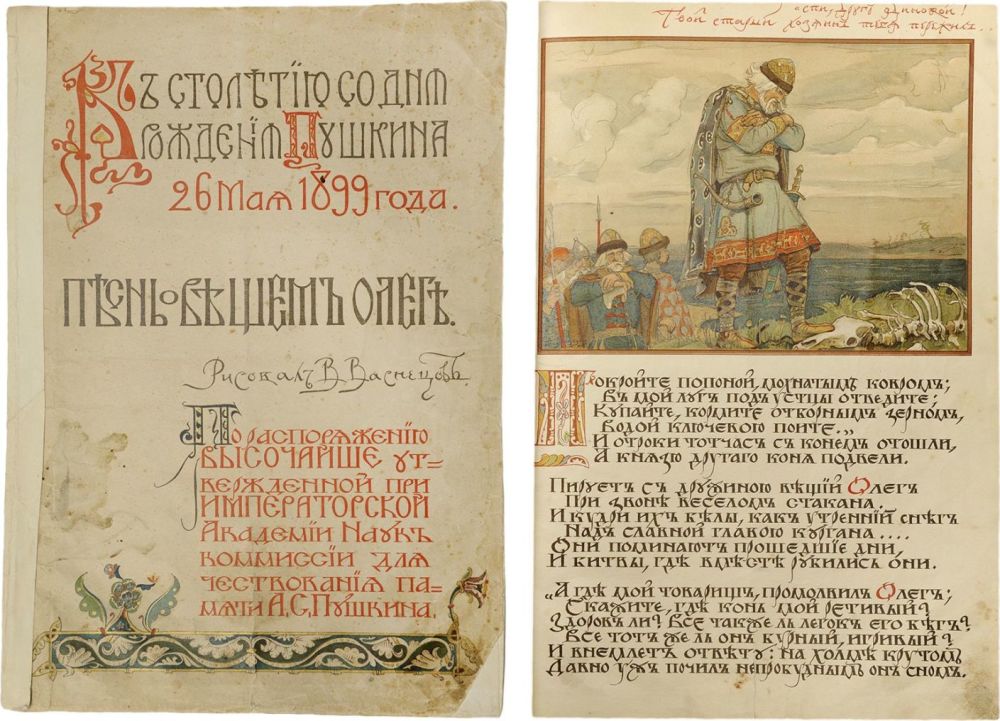 Въ столѣтію со дня
рожденія Пушкина
26 Мая 1899 года.
Пѣснь о вѣщемъ Олегѣ.
Рисовалъ В. Васнецовъ.
По распоряженію
высочайше ут=
вержденной при
Императорской
Академіи Наукъ
коммиссіи для
чествованія па=
мяти А.С.Пушкина.
"спи, другъ одинокой!
Твой старый хозяинъ тебя пережилъ..
Покройте попоной, мохнатымъ ковромъ;
Въ мой лугъ подъ устцы отведите;
Купайте, кормите отборнымъ зерном,
Водой ключевою поите..."
И отроки тотчасъ съ конемъ отошли,
А князю другаго коня подвели.
Пируетъ съ дружиною вѣщій Олегъ
При звонѣ веселомъ стакана.
И кудри ихъ бѣлы, какъ утренній снѣгъ
Надъ славной главою кургана....
Они поминаютъ прошедшіе дни,
И битвы, гдѣ вмѣстѣ рубились они.
"А гдѣ мой товарищъ, промолвилъ Олегъ;
Скажите, гдѣ конь мой ретивый?
Здоровъ ли? Все также ль легокъ его бѣгъ?
Все тотъ же ль онъ бурный, игривый?
И внемлетъ отвѣту: на холмѣ крутомъ
Давно ужъ почилъ непробуднымъ онъ сномъ.